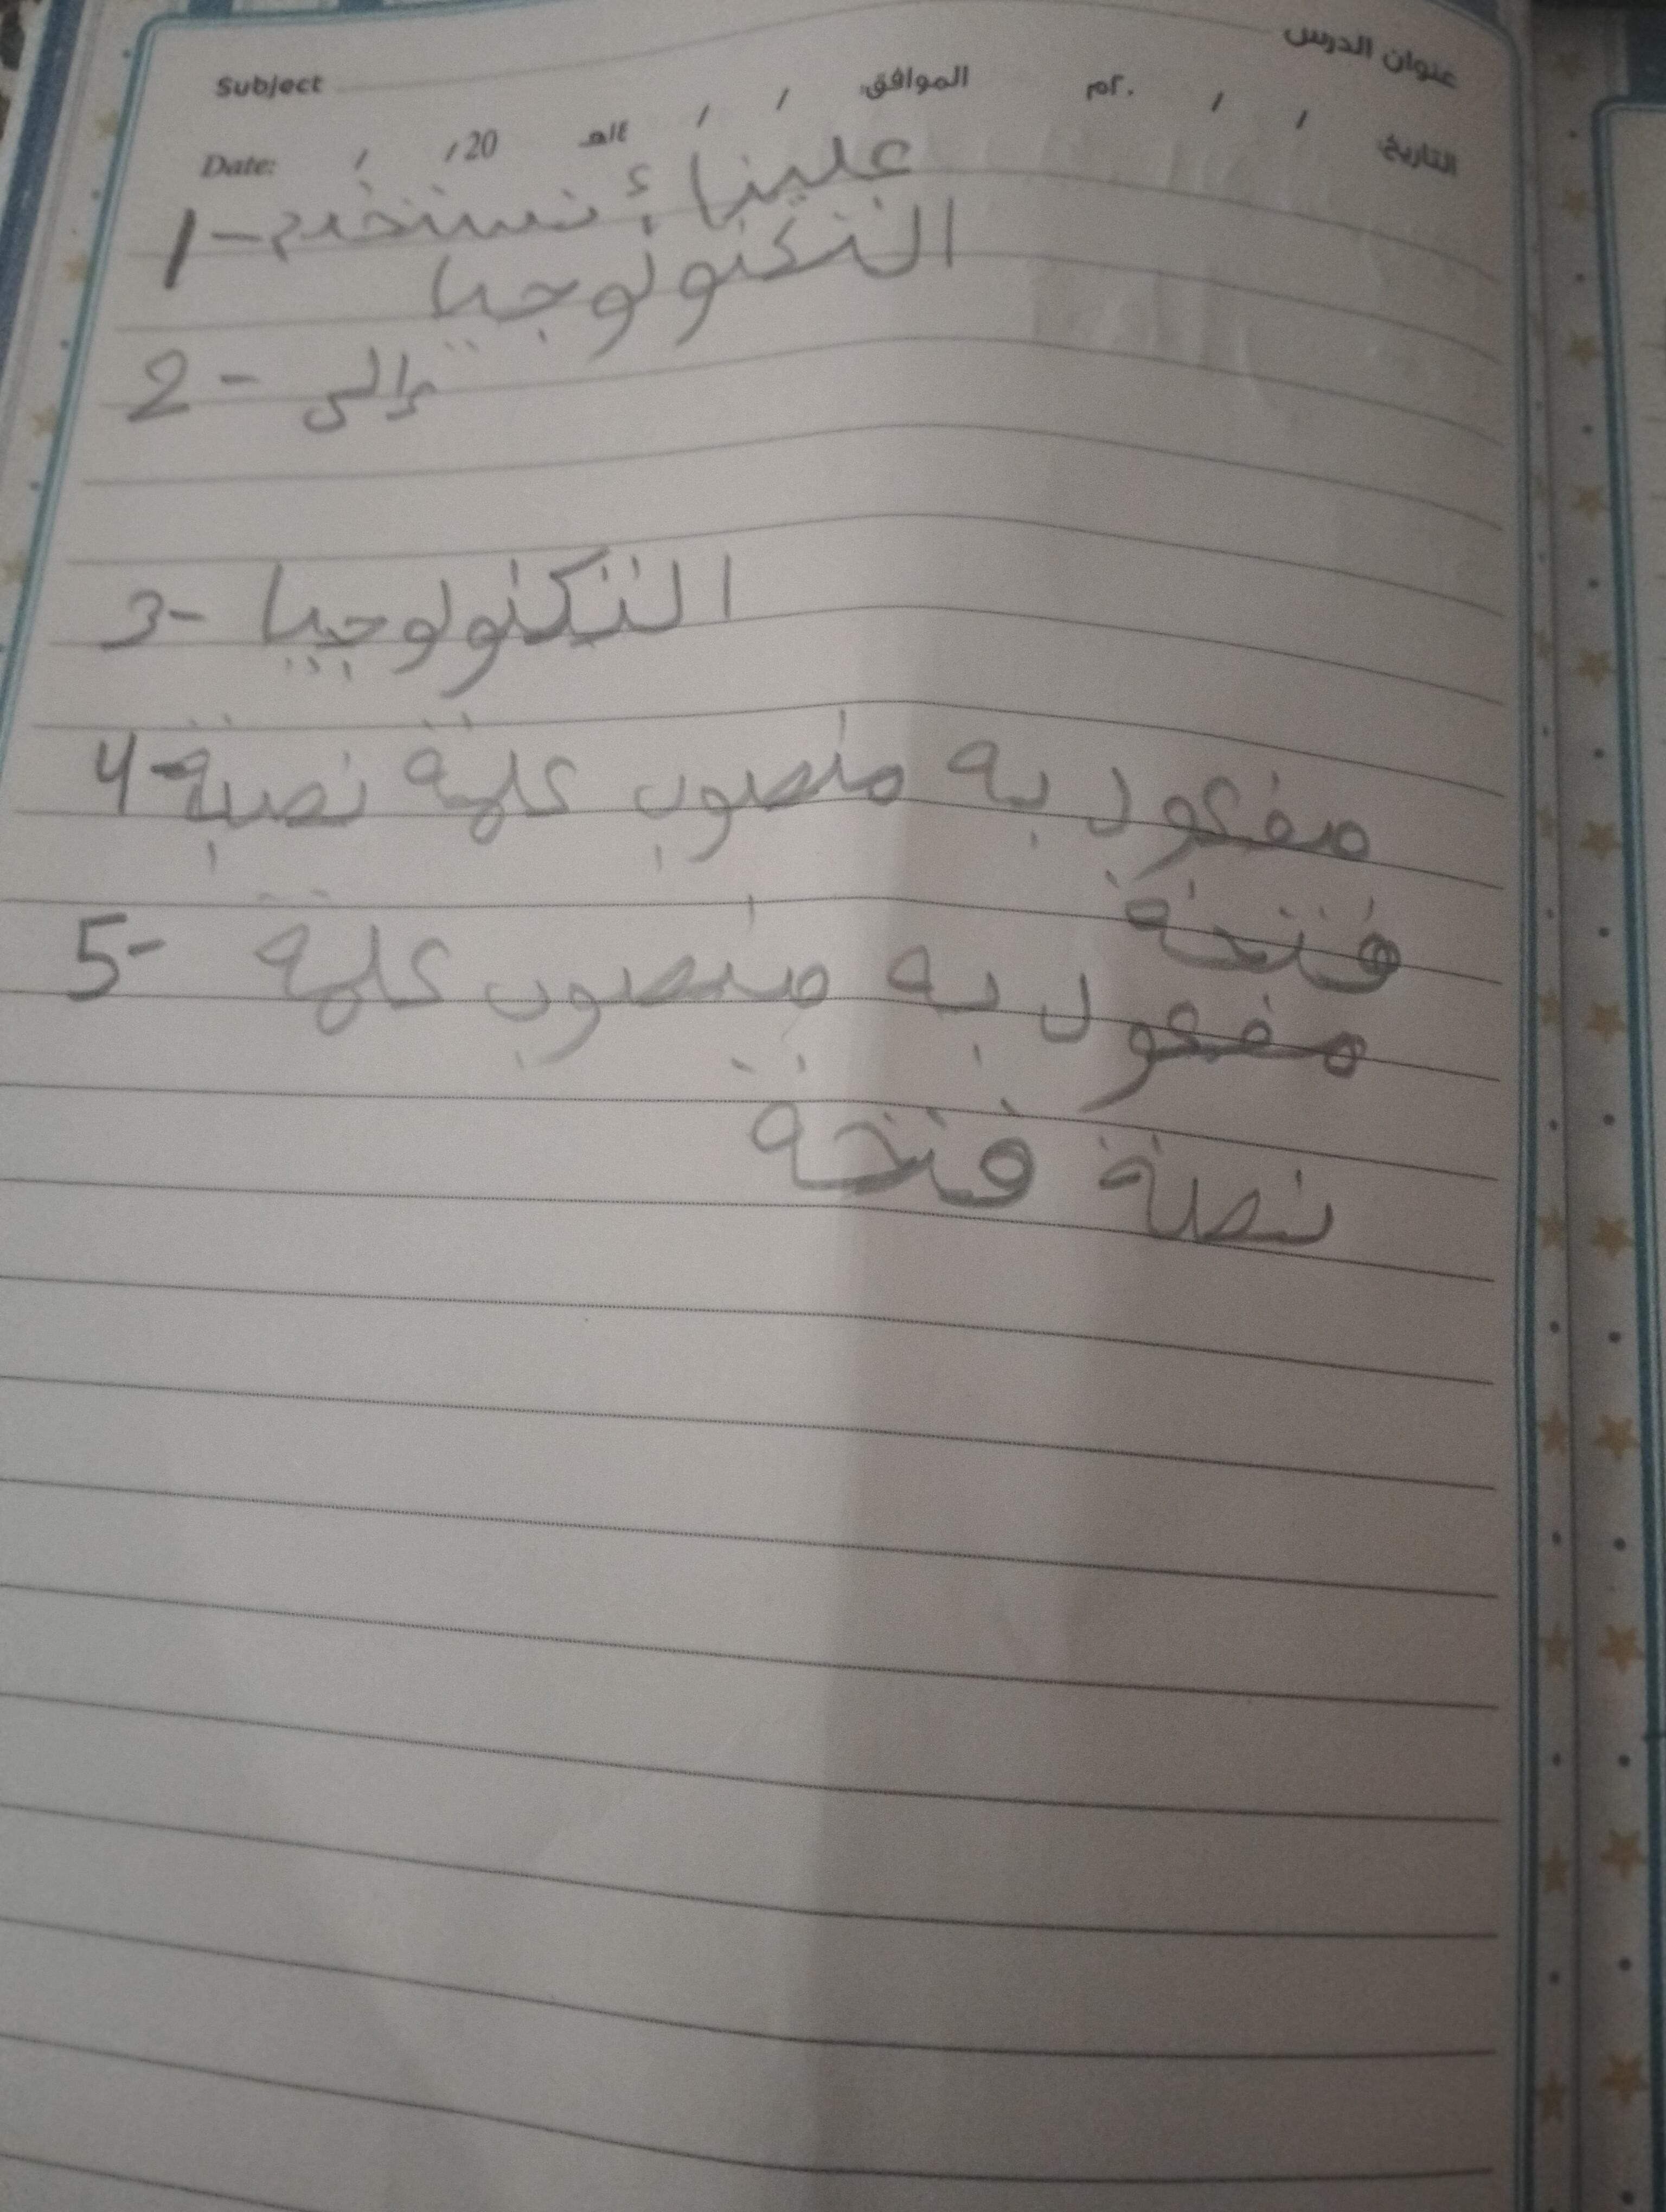 عنوان الدرس
Subject
التاريخ: / / ٢٠م الموافق: / / ١٤هـ Date: / / 20
1- علينا أ نستخدم
التكنولوجيا
2- إلى
3- التكنولوجيا
4- مفعول به منصوب علمة نصبة
فتحة
5- مفعول به منصوب علمة
نصبة فتحة